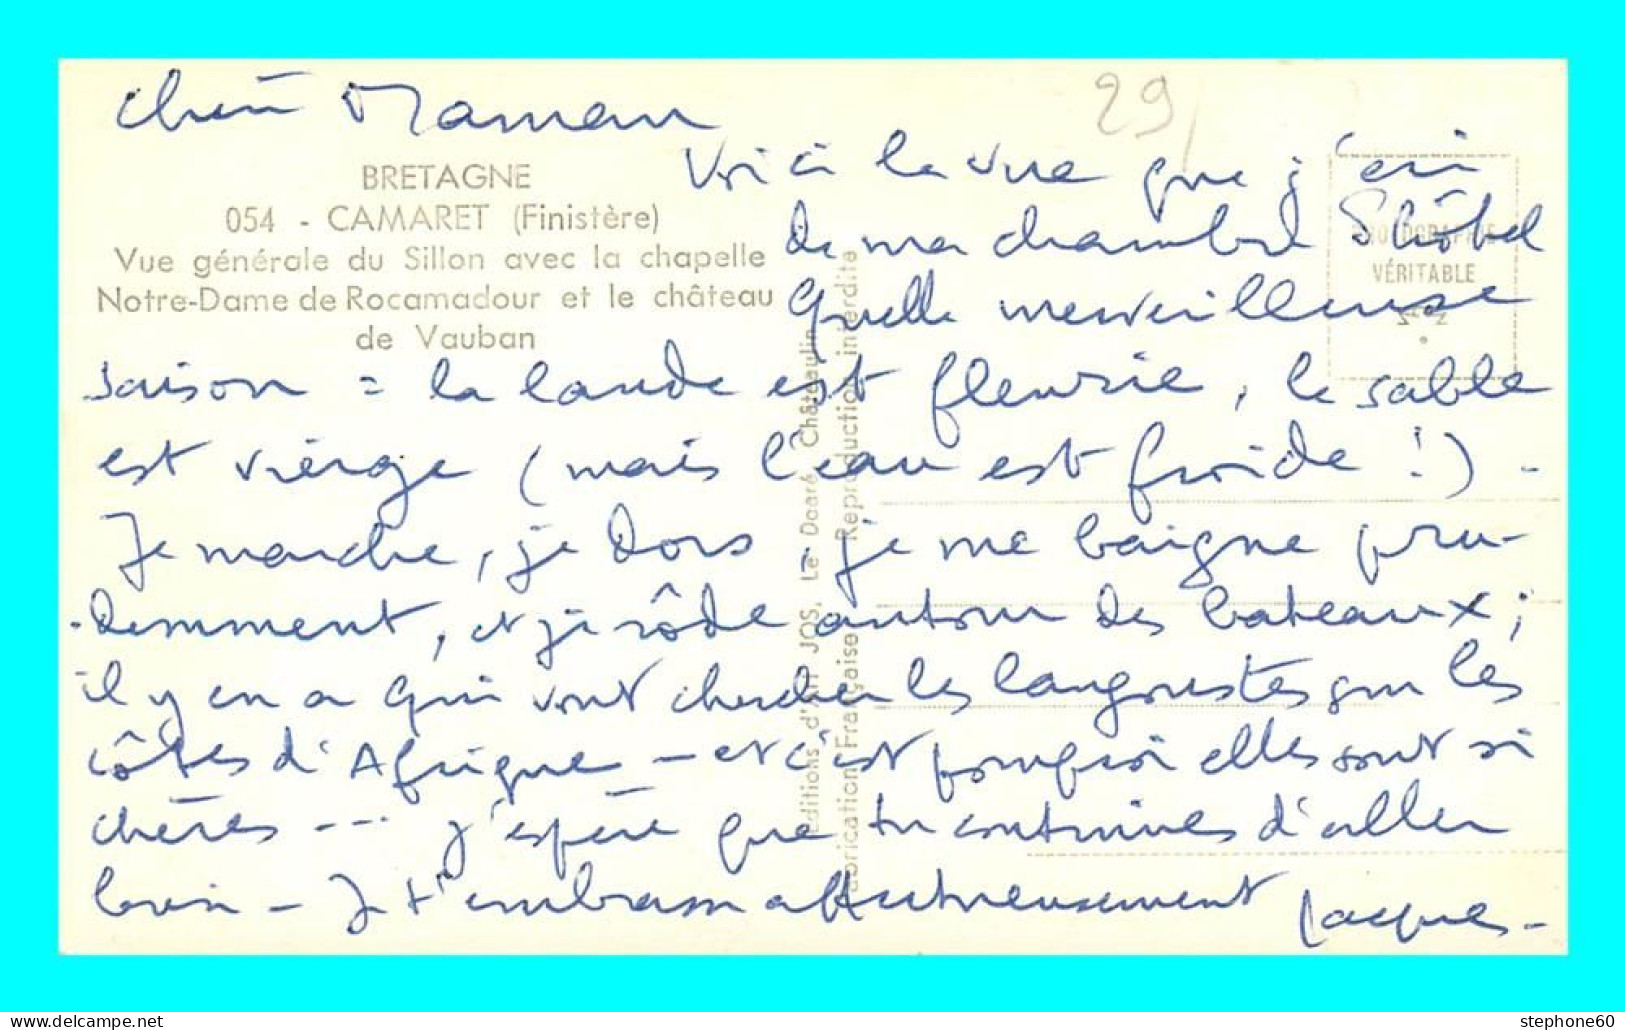 Chère Maman
29
BRETAGNE
054 - CAMARET (Finistère)
Vue générale du Sillon avec la chapelle
Notre-Dame de Rocamadour et le château
de Vauban
Voici la vue que j'ai
de ma chambre d'hôtel
Quelle merveilleuse
saison = la lande est fleurie, le sable
est vierge (mais l'eau est froide !) -
Je marche, je dors, je me baigne pru-
-demment, et je rôde autour des bateaux ;
il y en a qui vont chercher les langoustes sur les
côtes d'Afrique - et c'est pourquoi elles sont si
chères --- J'espère que tu continues d'aller
bien - Je t'embrasse affectueusement Jacques -
PHOTOGRAPHIE
VÉRITABLE
Editions d'Art JOS, Le Doaré, Châteaulin
Fabrication Française Reproduction interdite
delcampe.net
stephone60